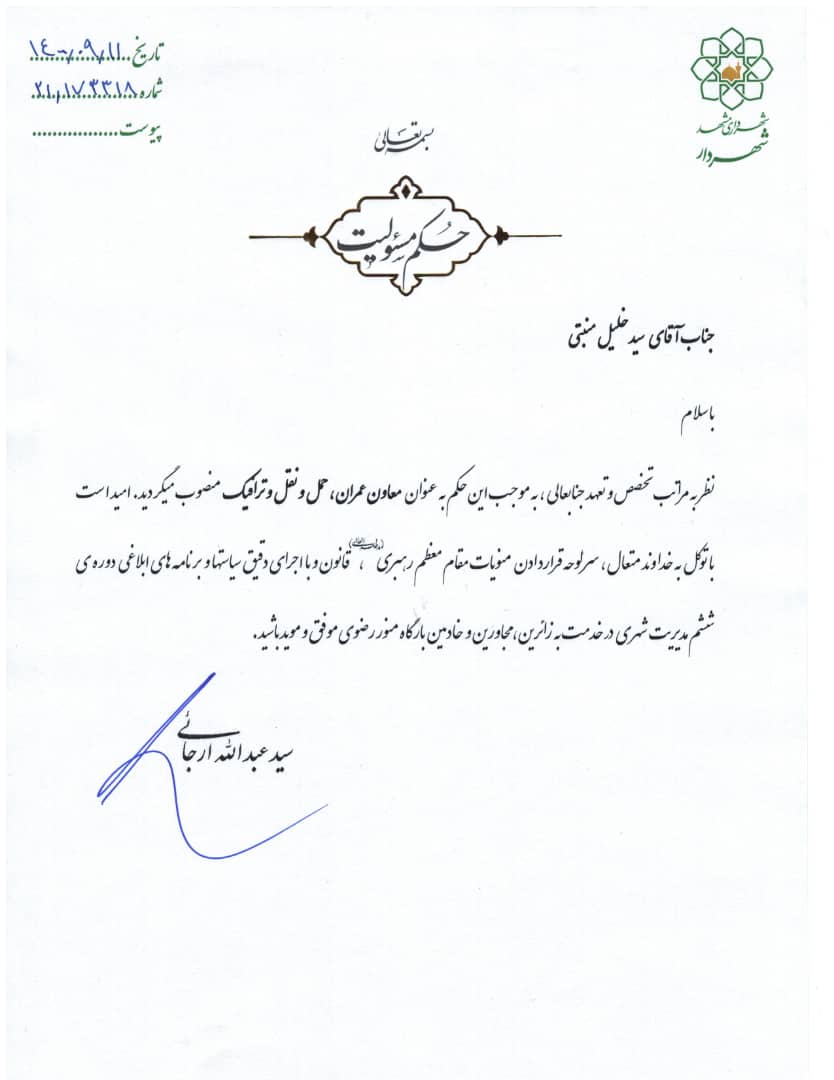 تاریخ ۱۴۰۰/۰۹/۱۱
شماره ۲۱/۱۷۳۳۱۸
پیوست
شهرداری مشهد
شهردار
بسمه تعالی
حکم مسئولیت
جناب آقای سید خلیل منبتی
با سلام
نظر به مراتب تخصص و تعهد جنابعالی، به موجب این حکم به عنوان معاون عمران، حمل و نقل و ترافیک منصوب میگردید. امید است
با توکل به خداوند متعال، سرلوحه قرار دادن منویات مقام معظم رهبری (مدظله العالی)، قانون و با اجرای دقیق سیاستها و برنامه های ابلاغی دوره ی
ششم مدیریت شهری در خدمت به زائرین، مجاورین و خادمین بارگاه منور رضوی موفق و موید باشید.
سید عبدالله ارجائی